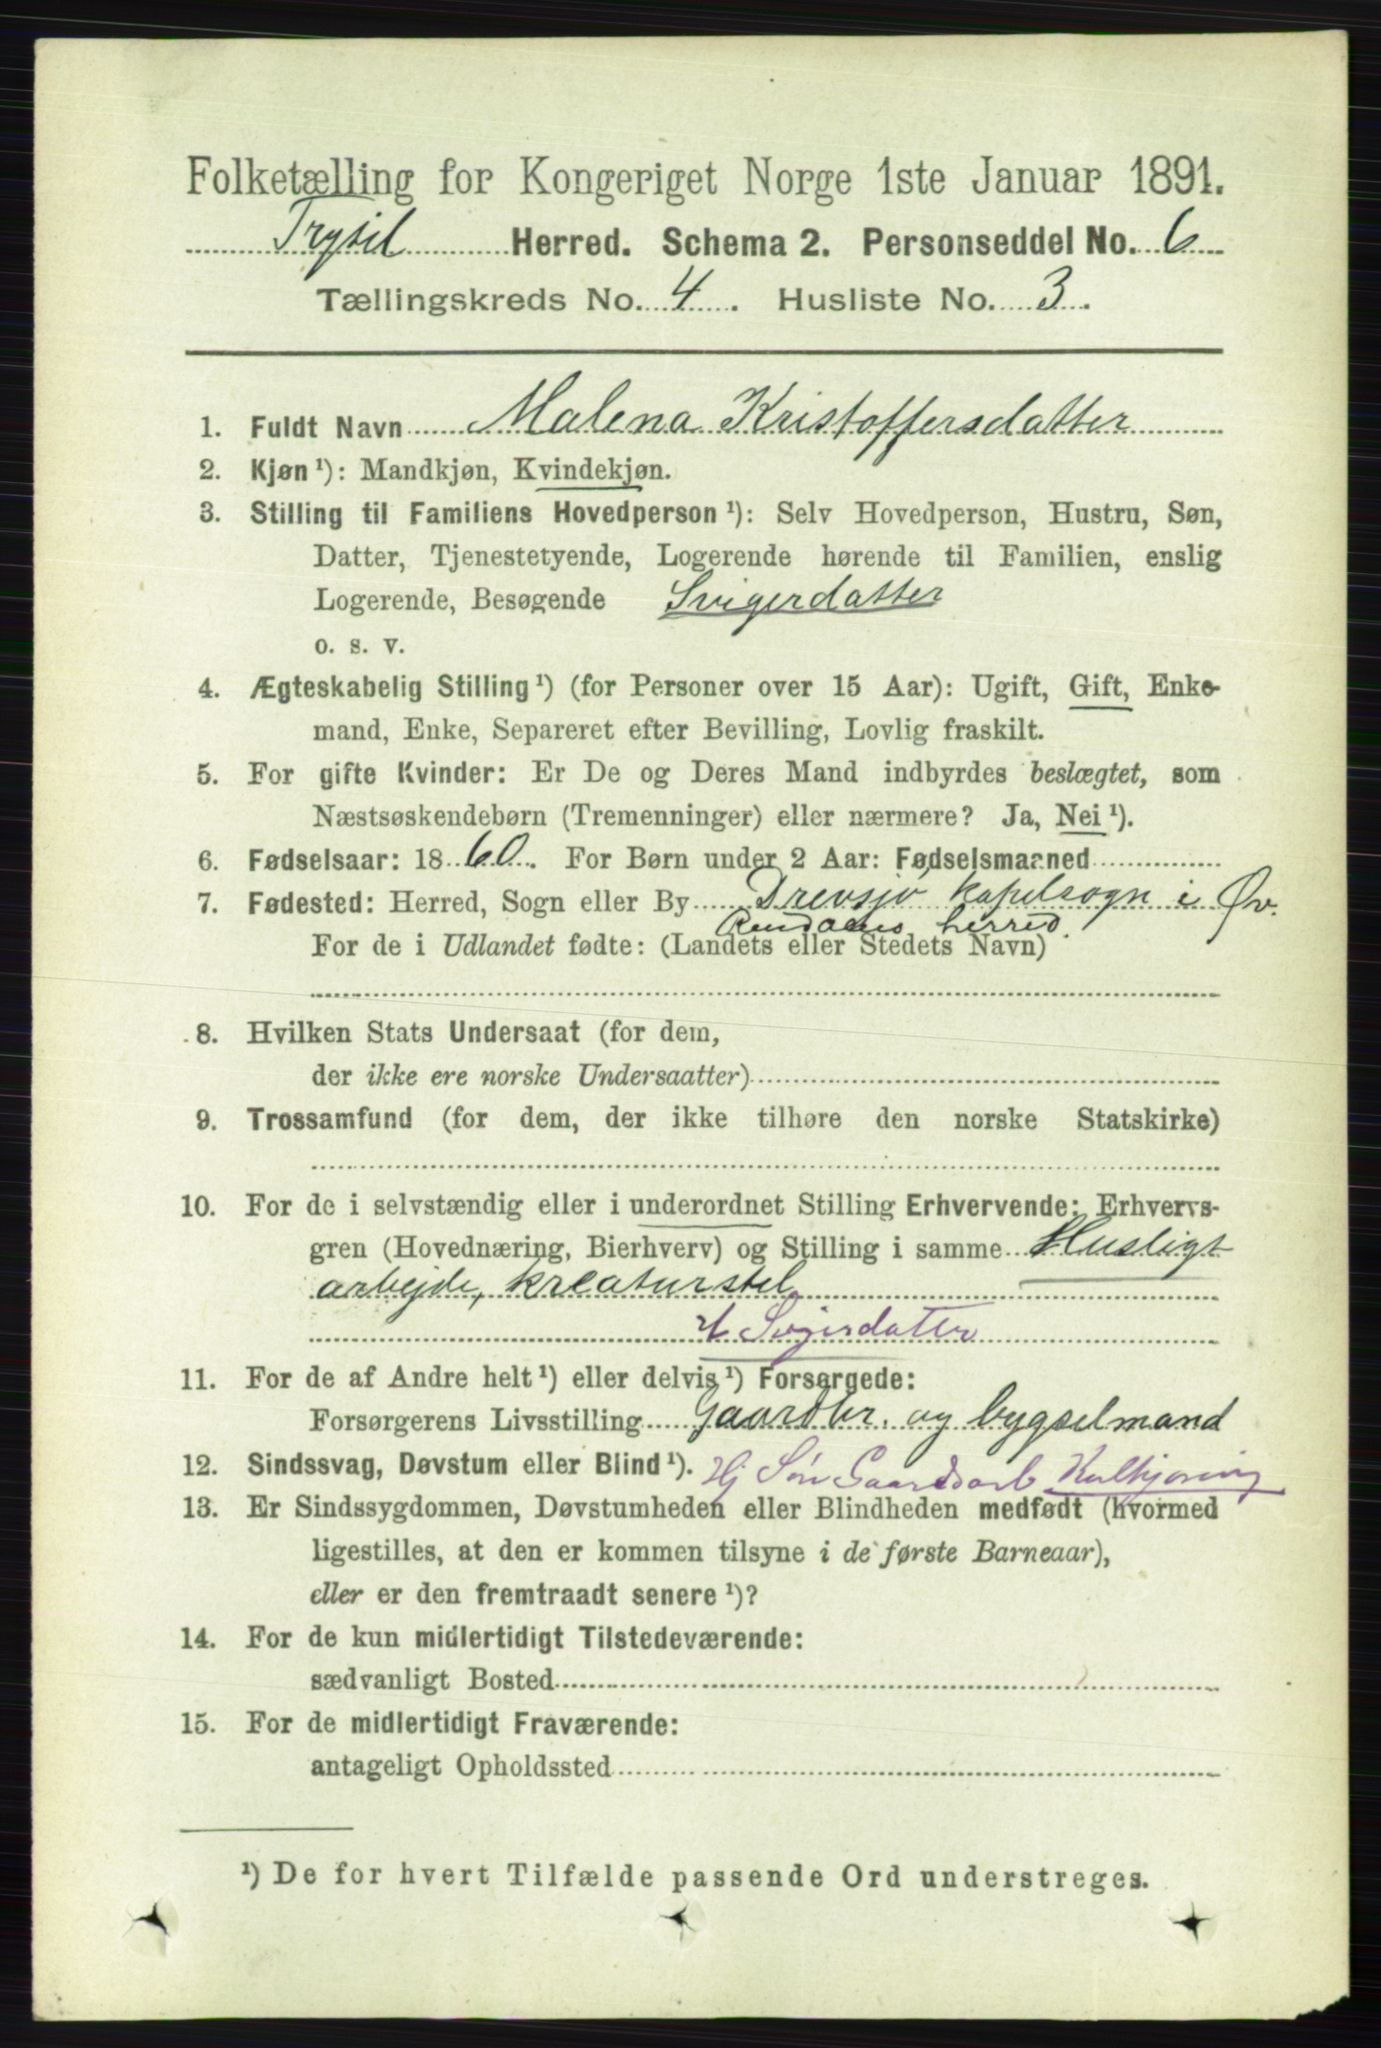 Folketælling for Kongeriget Norge 1ste Januar 1891.
Trysil Herred. Schema 2. Personseddel No. 6
Tællingskreds No. 4. Husliste No. 3.
1. Fuldt Navn Malena Kristoffersdatter
2. Kjøn ¹): Mandkjøn, Kvindekjøn.
3. Stilling til Familiens Hovedperson ¹): Selv Hovedperson, Hustru, Søn,
Datter, Tjenestetyende, Logerende hørende til Familien, enslig
Logerende, Besøgende Svigerdatter
o. s. v.
4. Ægteskabelig Stilling ¹) (for Personer over 15 Aar): Ugift, Gift, Enke-
mand, Enke, Separeret efter Bevilling, Lovlig fraskilt.
5. For gifte Kvinder: Er De og Deres Mand indbyrdes beslægtet, som
Næstsøskendebørn (Tremenninger) eller nærmere? Ja, Nei ¹).
6. Fødselsaar: 1860. For Børn under 2 Aar: Fødselsmaaned
7. Fødested: Herred, Sogn eller By Drevsjø kapelsogn i Øv.
Rendalens herred.
For de i Udlandet fødte: (Landets eller Stedets Navn)
8. Hvilken Stats Undersaat (for dem,
der ikke ere norske Undersaatter)
9. Trossamfund (for dem, der ikke tilhøre den norske Statskirke)
10. For de i selvstændig eller i underordnet Stilling Erhvervende: Erhvervs-
gren (Hovednæring, Bierhverv) og Stilling i samme Husligt
arbejde, kreaturstel
Svigerdatter
11. For de af Andre helt ¹) eller delvis ¹) Forsørgede:
Forsørgerens Livsstilling Gaardbr. og bygselmand
12. Sindssvag, Døvstum eller Blind ¹). Hj Søn Gaardsarb
13. Er Sindssygdommen, Døvstumheden eller Blindheden medfødt (hvormed
ligestilles, at den er kommen tilsyne i de første Barneaar),
eller er den fremtraadt senere ¹)?
14. For de kun midlertidigt Tilstedeværende:
sædvanligt Bosted
15. For de midlertidigt Fraværende:
antageligt Opholdssted
¹) De for hvert Tilfælde passende Ord understreges.